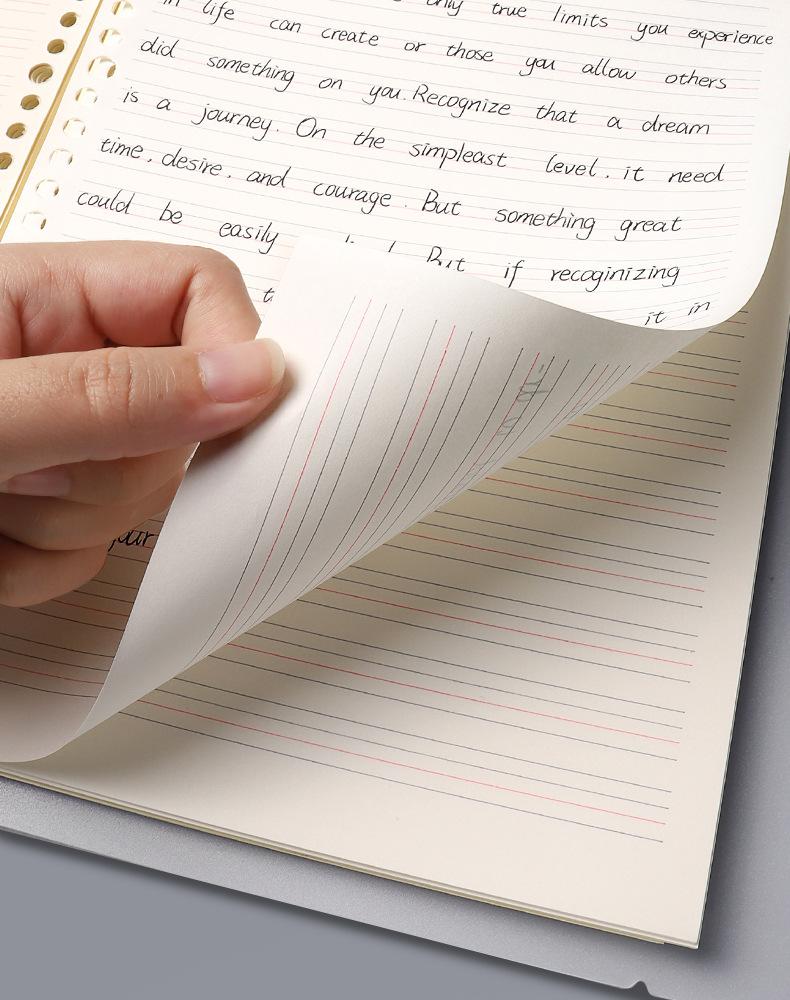 only true limits you experience
in life can create or those you allow others
did something on you. Recognize that a dream
is a journey. On the simpleast level, it need
time, desire, and courage. But something great
could be easily But if recoginizing
it in
your